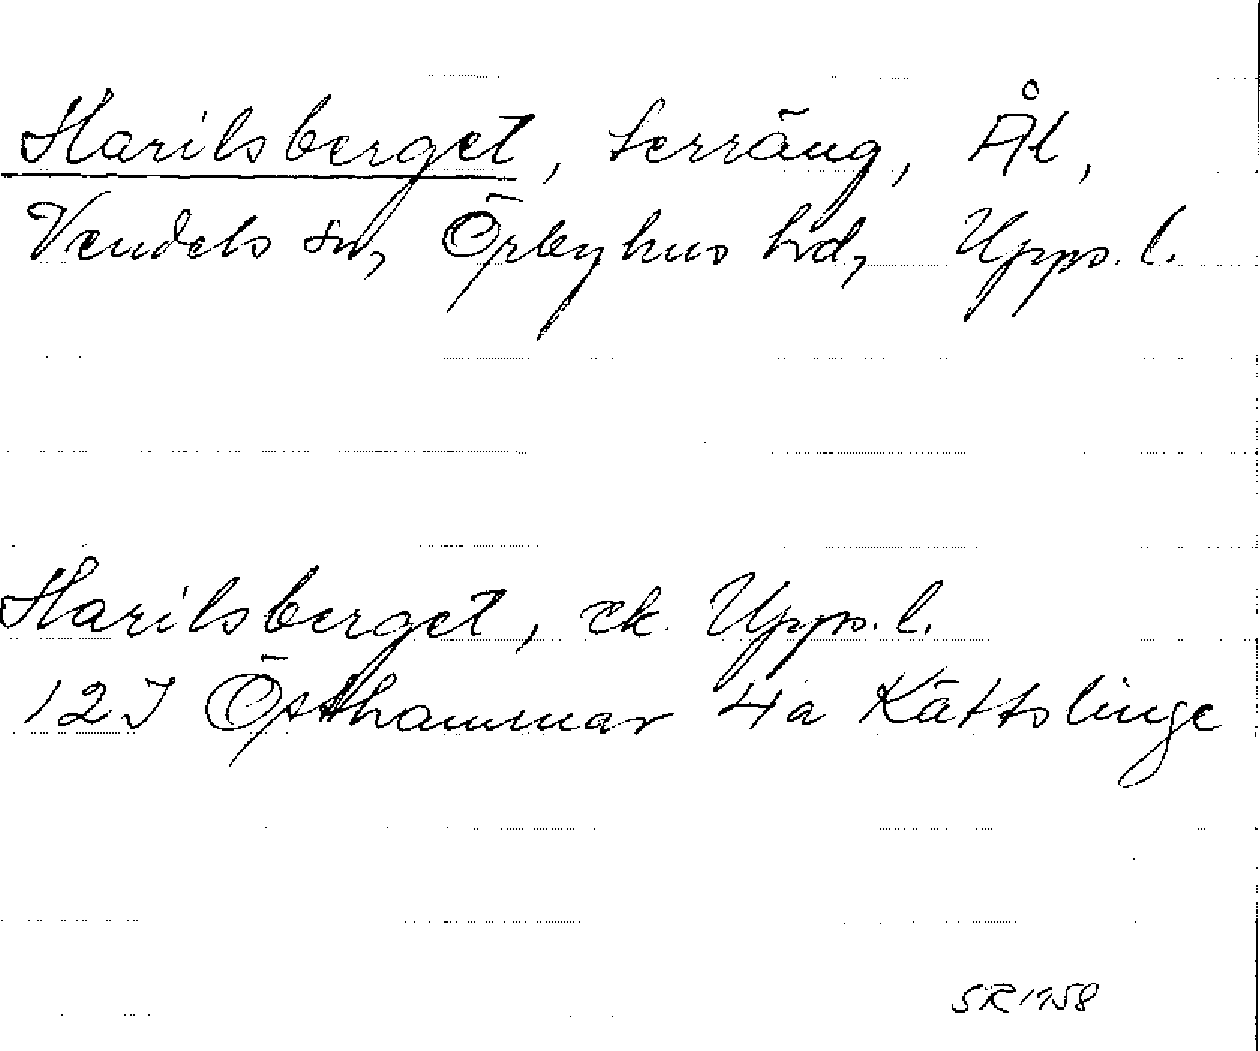 Harilsberget, terräng, Ål,
Vendels sn, Örbyhus hd, Upps. l.
Harilsberget, ek. Upps. l.
12 I Östhammar 4a Kättslinge
SR 1958